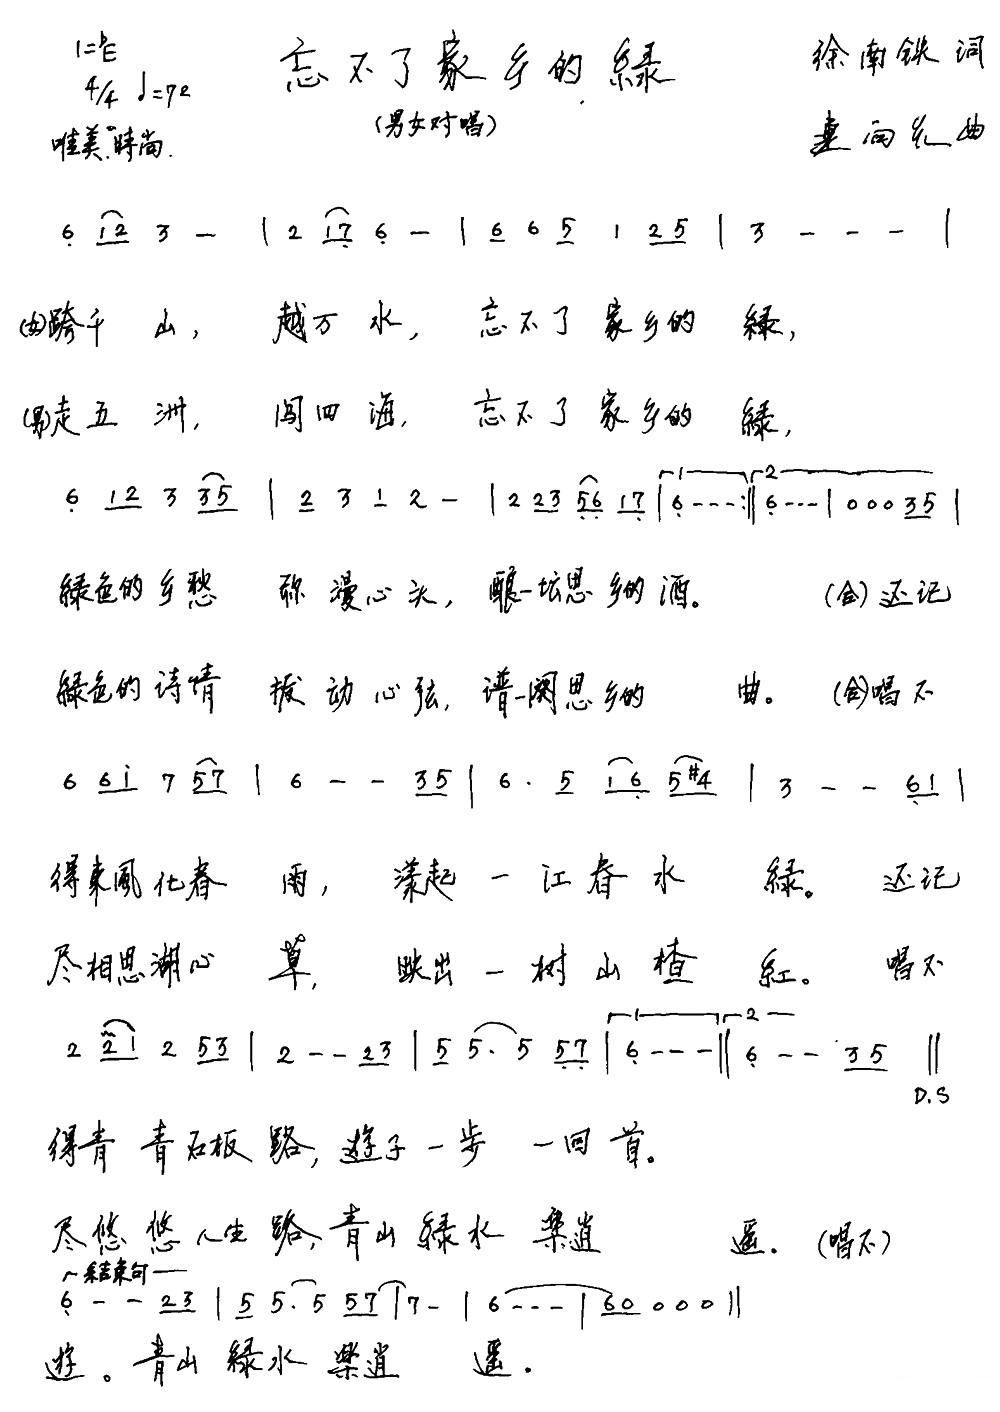 1=♭E 忘不了家乡的緑 徐南铁 词
4/4 ♩=72 (男女对唱) 曲
唯美、時尚.
6 12 3 — | 2 17 6 — | 6 6 5 1 25 | 3 - - - |
(女)跨千 山， 越万 水， 忘不了 家乡的 緑，
(男)走五 洲， 闯四 海， 忘不了 家乡的 緑，
6 12 3 35 | 2 3 1 2 - | 2 23 56 17 | 1 6 - - - :‖ 2 6 - - - | 0 0 0 35 |
緑色的乡愁 弥漫心头，酿一坛思乡的酒。 (合)还记
緑色的诗情 拨动心弦，谱一阕思乡的 曲。 (合)唱不
6 61̇ 7 57 | 6 - - 35 | 6 · 5 16 5#4 | 3 - - 61 |
得東風化春 雨， 漾起一江春水 緑。 还记
尽相思湖心 草， 映出一树山楂 紅。 唱不
2 21 2 53 | 2 - - 23 | 5 5· 5 57 | 1 6 - - - ‖ 2 6 - - 35 ‖
D.S
得青 青石板 路，遊子一步 一回首。
尽悠 悠人生 路，青山緑水 樂逍 遥。 (唱不)
~結束句—
6 - - 23 | 5 5· 5 57 | 7 - | 6 - - - | 60 0 0 0 ‖
遊。青山 緑水 樂逍 遥。